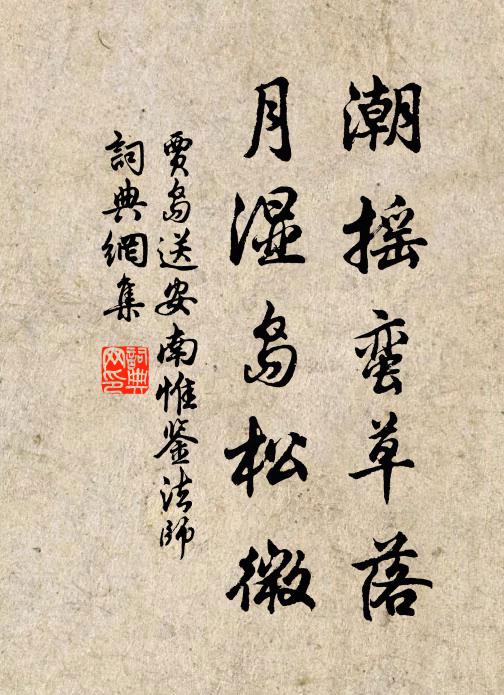 潮摇蛮草落
月湿岛松微
贾岛送安南惟鉴法师
詞典網集
詞典網印